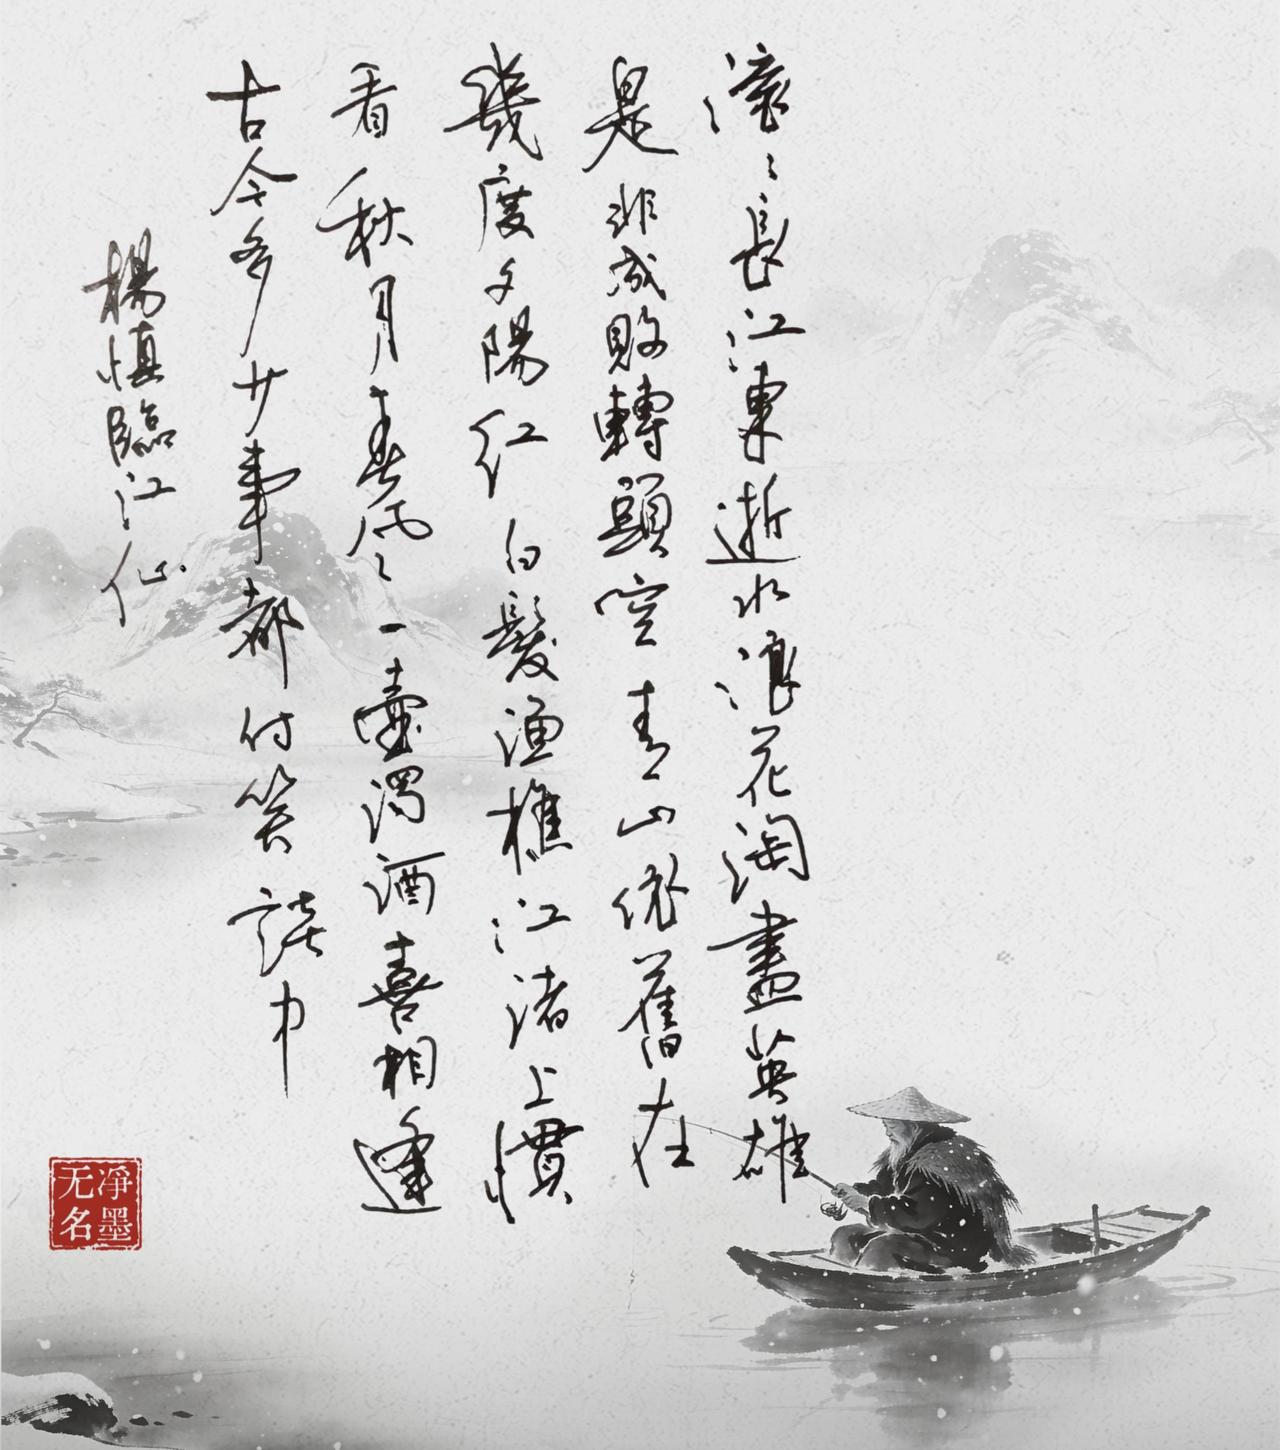 滾〻長江東逝水浪花淘盡英雄
是非成敗轉頭空青山依舊在
幾度夕陽紅白髮漁樵江渚上慣
看秋月春風〻一壺濁酒喜相逢
古今多少事都付笑談中
楊慎臨江仙
凈墨
无名